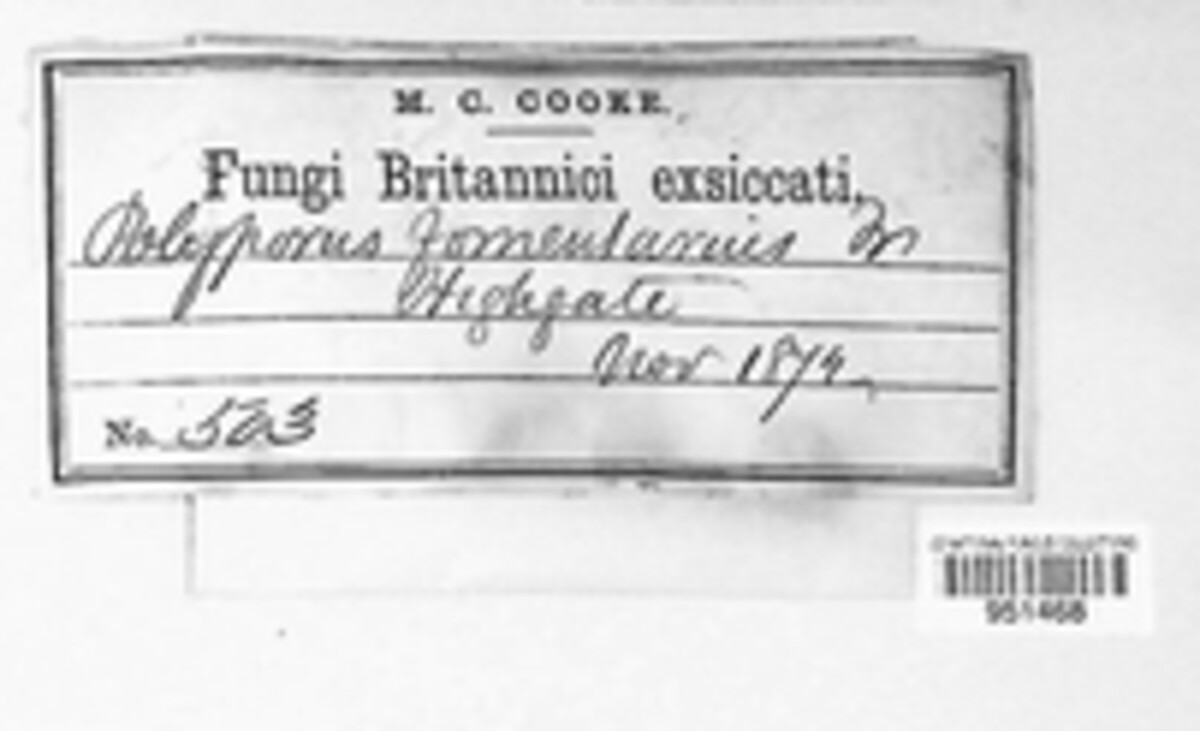 M. C. COOKE.
Fungi Britannici exsiccati,
Polyporus fomentarius Fr
Highgate
Nov 1874
No. 503
951468